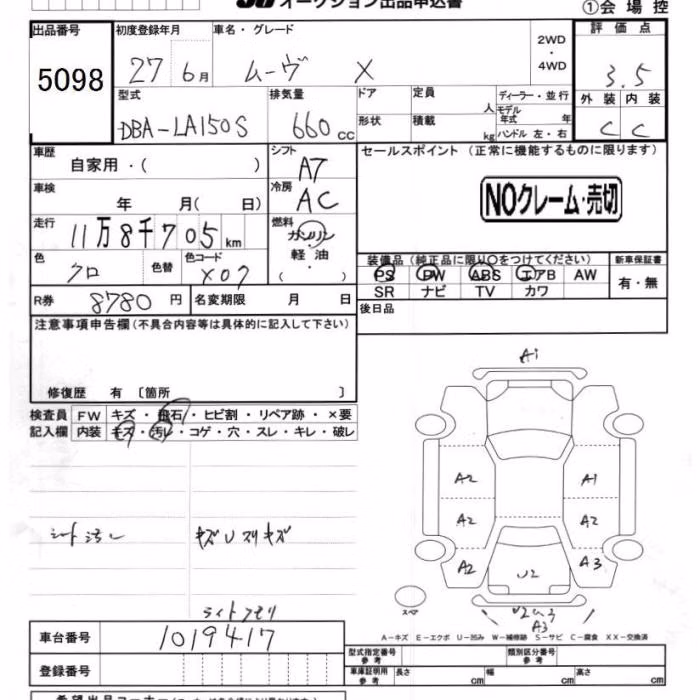 オークション出品申込書
①会場控
出品番号 初度登録年月 車名・グレード 2WD・4WD 評価点
5098 27 6月 ムーヴ X 3.5
型式 排気量 ドア 定員 人 ディーラー・並行 外装 内装
DBA-LA150S 660cc 形状 積載 kg モデル年式 年 C C
ハンドル 左・右
車歴 自家用・( ) シフト A7 セールスポイント (正常に機能するものに限ります)
車検 年 月( 日) 冷房 AC NOクレーム・売切
走行 11万8千705km 燃料 ガソリン・軽油・( )
色 クロ 色替 色コード X07
装備品 (純正品に限り○をつけてください) 新車保証書
PS PW ABS エアB AW 有・無
SR ナビ TV カワ
R券 8780円 名変期限 月 日 後日品
注意事項申告欄(不具合内容等は具体的に記入して下さい)
修復歴 有 〔箇所 〕
検査員 FW キズ・飛石・ヒビ割・リペア跡・×要
記入欄 内装 キズ・汚レ・コゲ・穴・スレ・キレ・破レ
A1
A2 A1
A2 A2
A2 U2 A3
シート汚レ キズUスリキズ
スペア
A3
ライトクモリ
車台番号 1019417
登録番号
A-キズ E-エクボ U-凹み W-補修跡 S-サビ C-腐食 XX-交換済
型式指定番号 参考 類別区分番号 参考
車庫証明用 参考 長さ cm 幅 cm 高さ cm